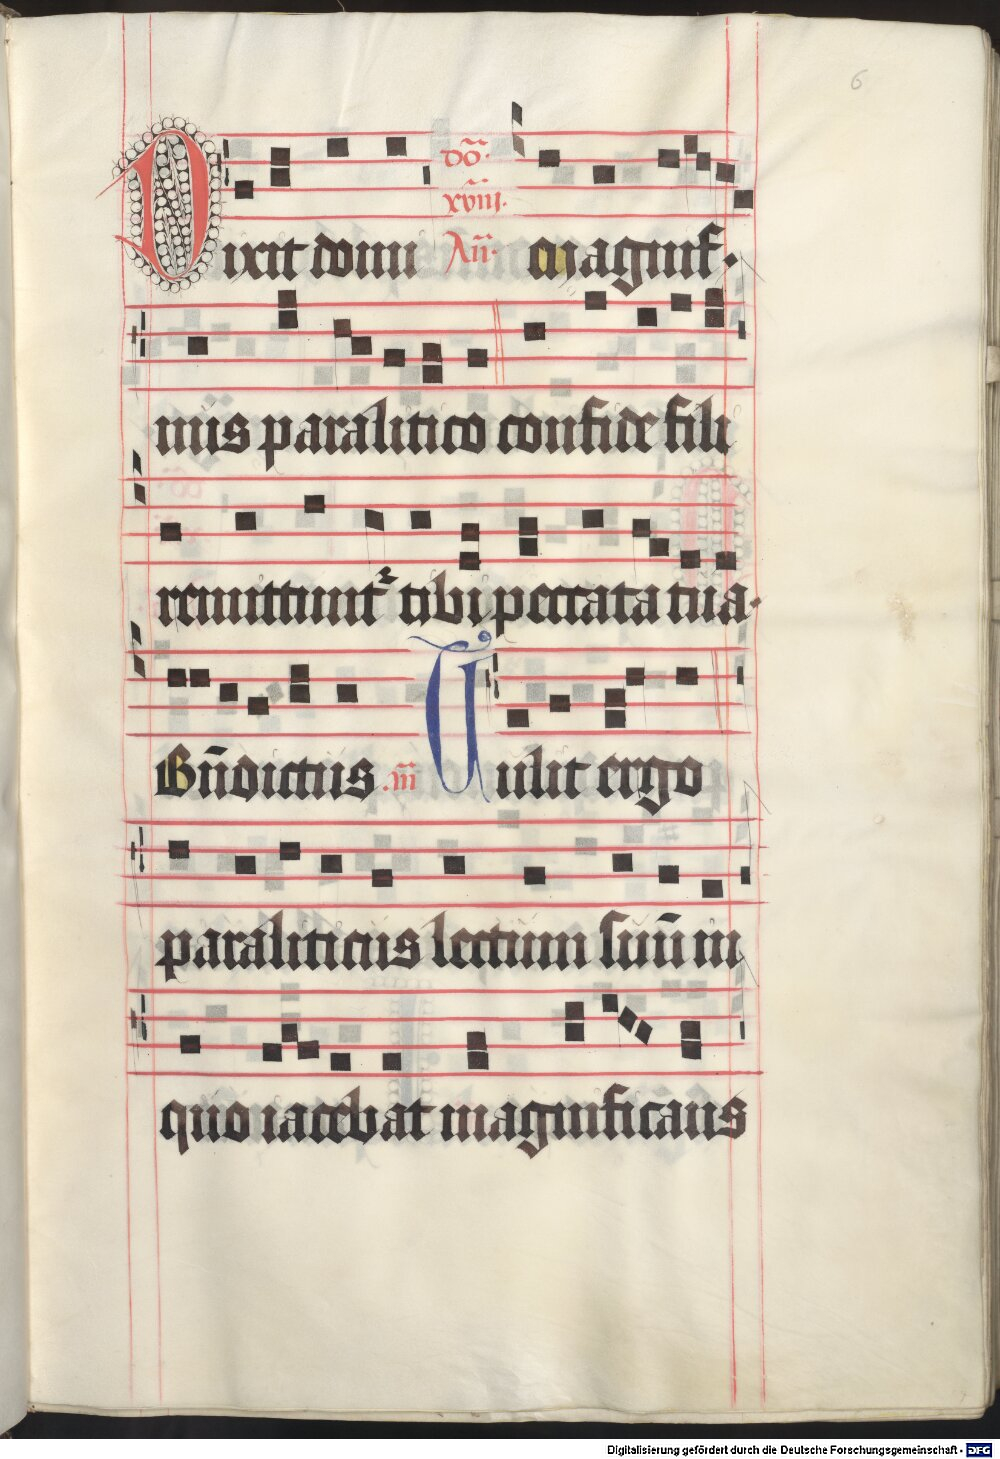 6
Dixit domi dō̄. xviij. Añ. Magnif.
nus paralitico confide fili
remittunt² tibi peccata tua.
Bn̄dictus .m̄. Tulit ergo
paraliticus lectum suū in
quo iacebat magnificans
Digitalisierung gefördert durch die Deutsche Forschungsgemeinschaft - DFG